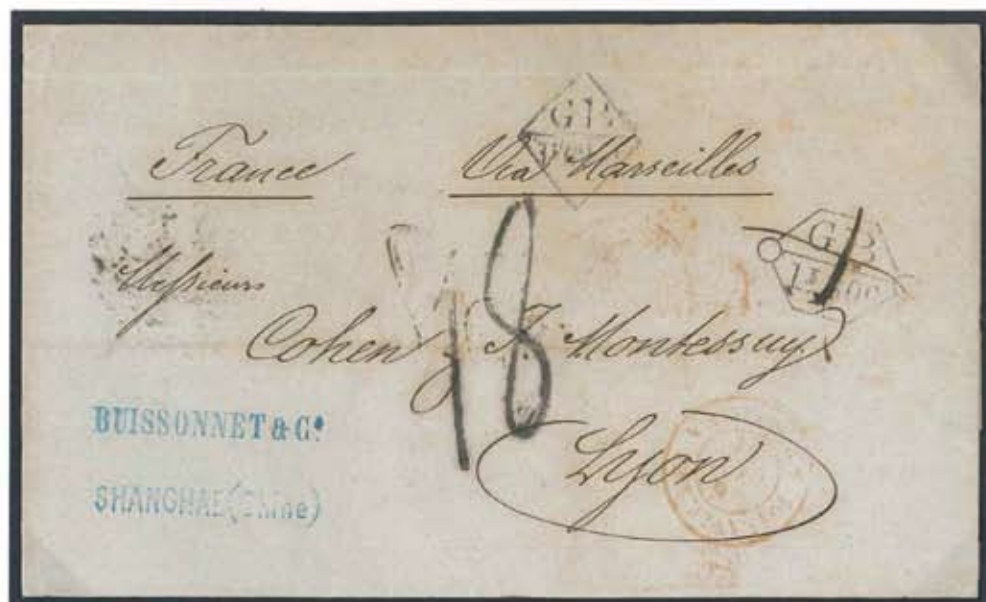 GB
France Via Marseilles
GB
Messieurs
18
Cohen & J. Montessuy
BUISSONNET & Co.
Lyon
SHANGHAE (Chine)